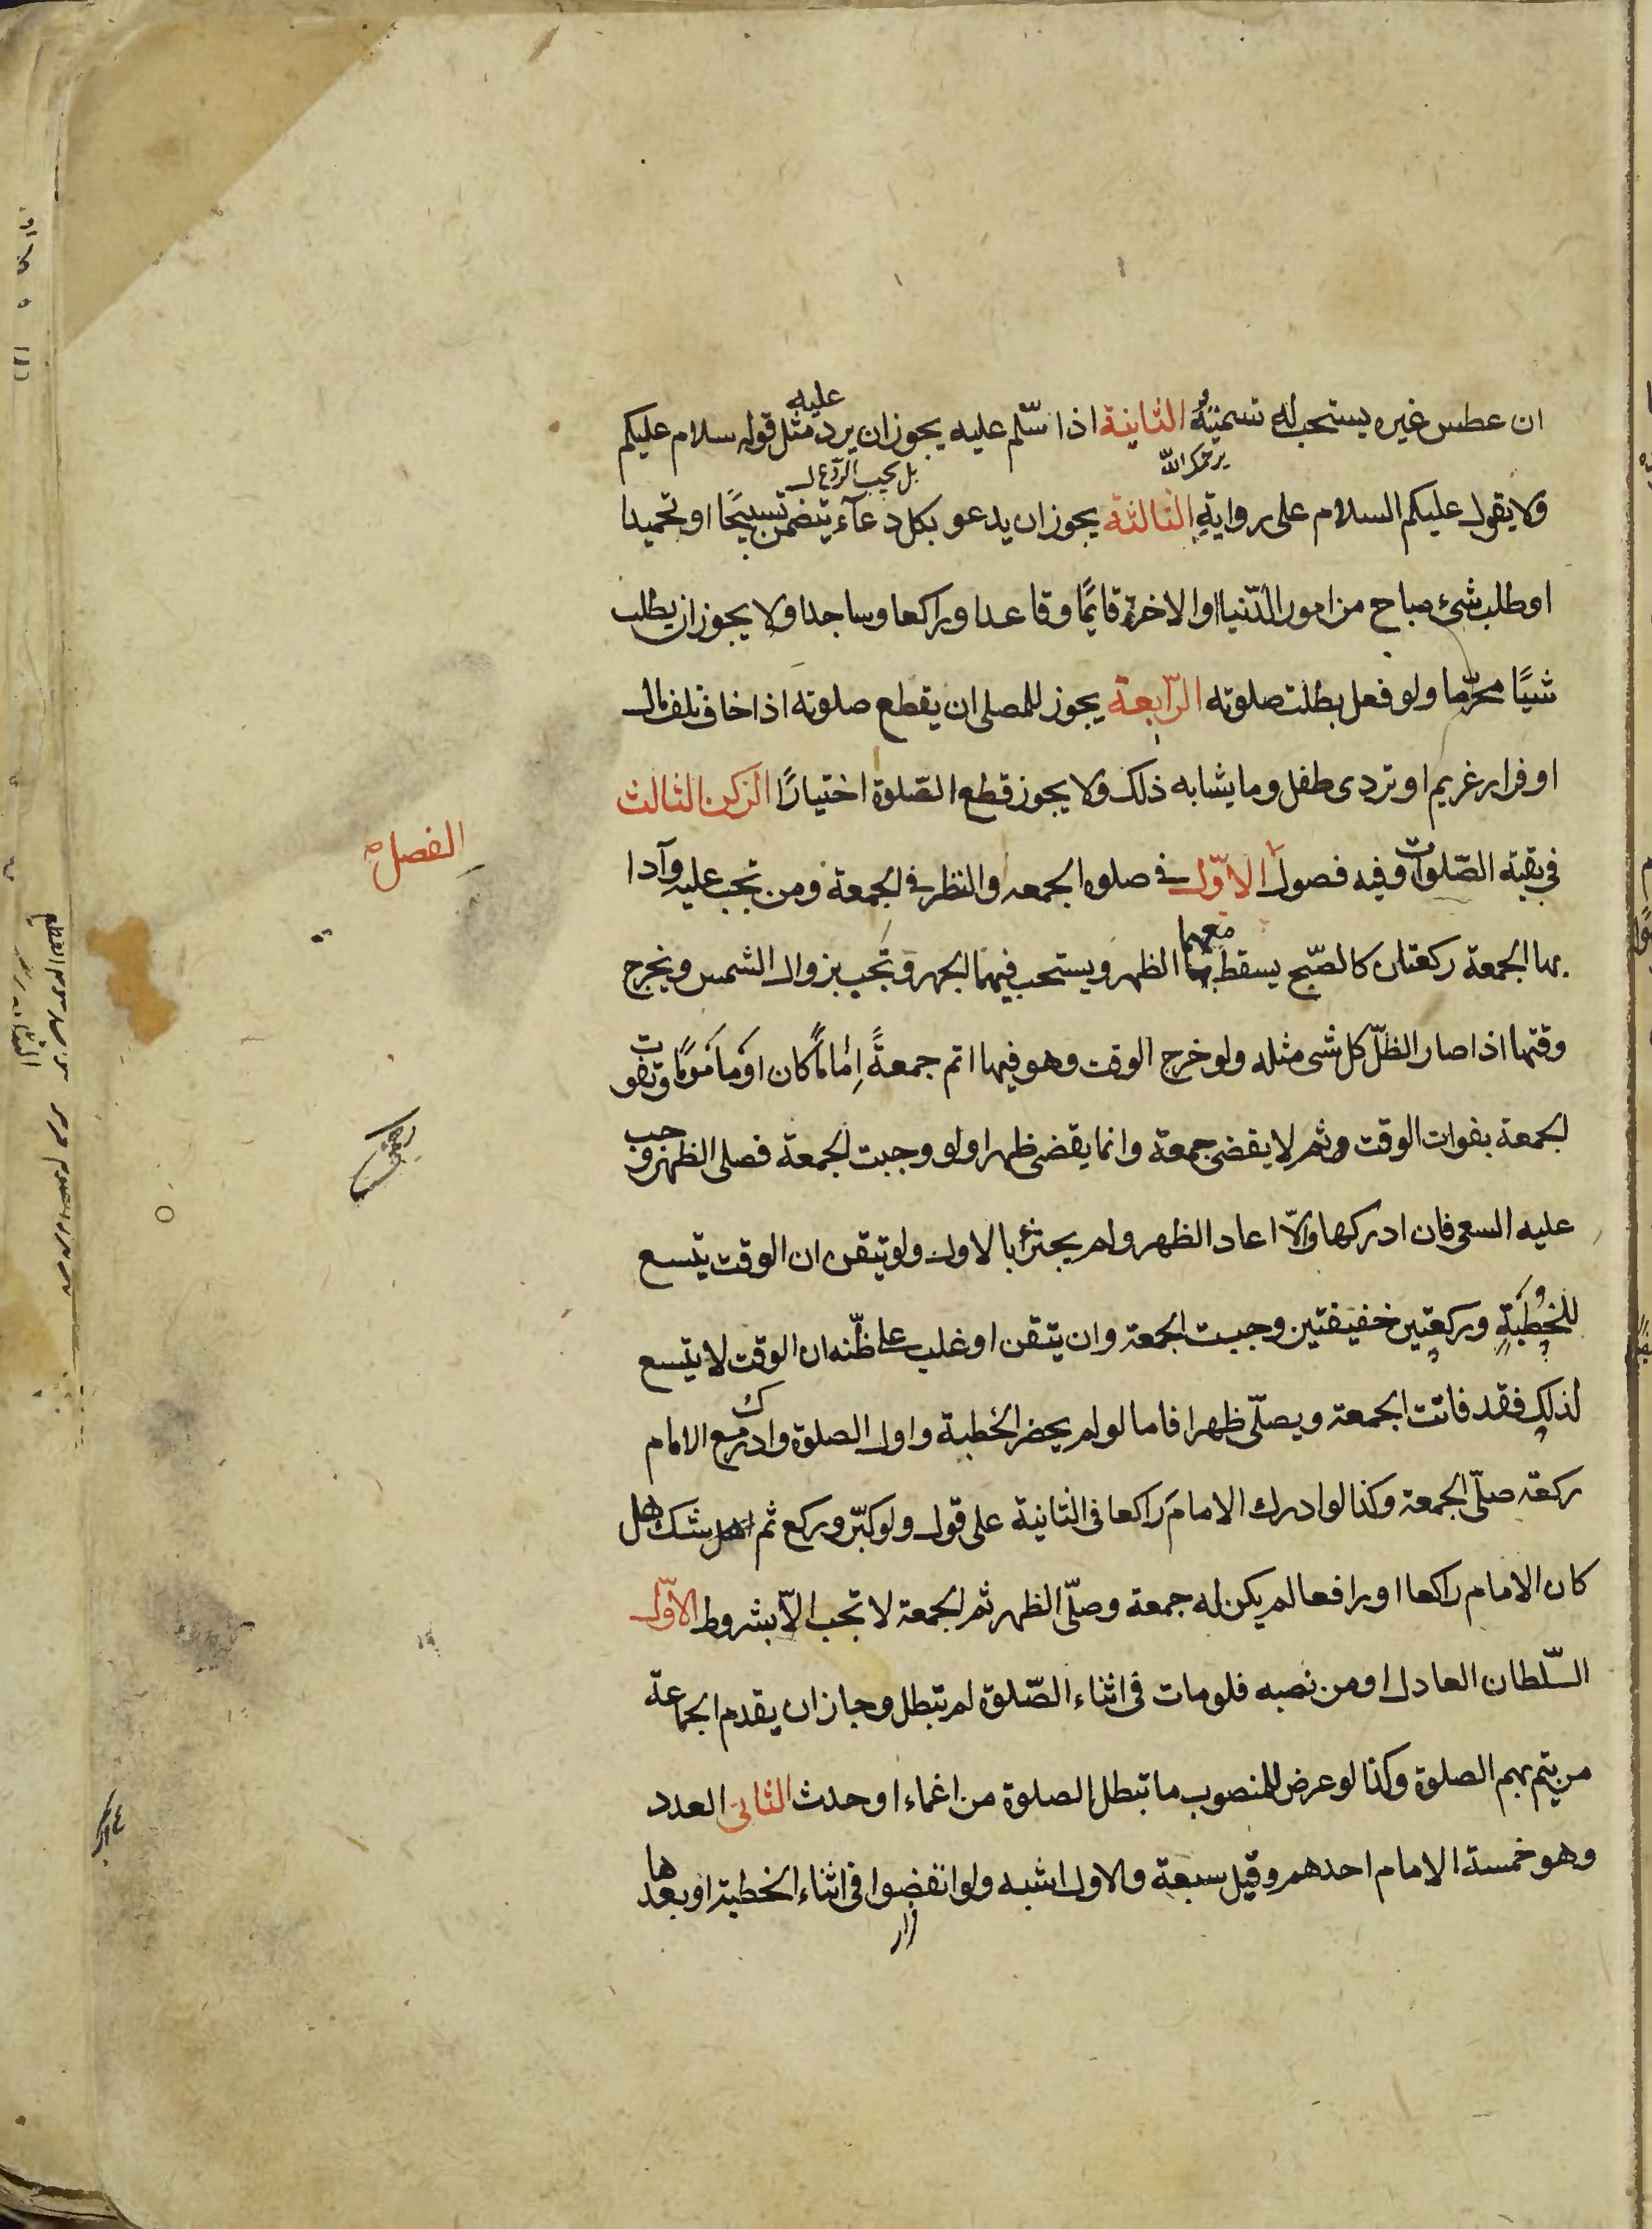 ان عطس غيره يستحب له تسميته الثانية اذا سلّم عليه يجوز ان يرد عليه مثل قوله سلام عليكم
يرحمك الله
بل يجب الرد ع ل
ولا يقول عليكم السلام على رواية الثالثة يجوز ان يدعو بكل دعآء يتضمن تسبيحًا او تحميدا
او طلب شئ مباح من امور الدّنيا او الاخرة قايمًا وقاعدا وراكعا وساجدا ولا يجوز ان يطلب
شيًا محرّما ولو فعل بطلت صلوته الرّابعة يجوز للمصلى ان يقطع صلوته اذا خاف تلف مال
او فرار غريم او تردى طفل وما يشابه ذلك ولا يجوز قطع الصّلوة اختيارًا الركن الثالث
الفصل صح
فى بقية الصّلوات وفيه فصول الاوّل فى صلوه الجمعه والنظر فى الجمعة ومن تجب عليه وآدا
بها الجمعة ركعتان كالصّبح يسقط معهما الظهر ويستحب فيهما الجهر وتجب بزوال الشمس ويخرج
وقتها اذا صار الظلّ كل شى مثله ولو خرج الوقت وهو فيها اتم جمعةً اِمامًا كان او مأمومًا وتفوت
الجمعة بفوات الوقت وثم لا يقضى جمعة وانما يقضى ظهرا ولو وجبت الجمعة فصلى الظهر وجب
عليه السعى فان ادركها والّا اعاد الظهر ولم يجتزئ بالاول ولو تيقن ان الوقت يتسع
للخُطبَةِ وركعتين خفيفتين وجبت الجمعة وان يتقن او غلب على ظنّه ان الوقت لا يتسع
لذلك فقد فاتت الجمعة ويصلّى ظهرا فاما لو لم يحضر الخطبة واول الصلوة وادرك مع الامام
ركعة صلّى الجمعة وكذا لو ادرك الامامَ راكعا فى الثانية على قول ولو كبّر وركع ثم شك هل
كان الامام راكعا او رافعا لم يكن له جمعة وصلّى الظهر ثم الجمعة لا تجب الاّ بشروط الاوّل
السّلطان العادل او من نصبه فلو مات فى اثناء الصّلوة لم تبطل وجاز ان يقدم الجماعة
من يتم بهم الصلوة وكذا لو عرض للمنصوب ما تبطل الصلوة من اغماء او حدث الثانى العدد
وهو خمسة الامام احدهم وقيل سبعة والاول اشبه ولو انفضوا فى اثناء الخطبة او بعدها